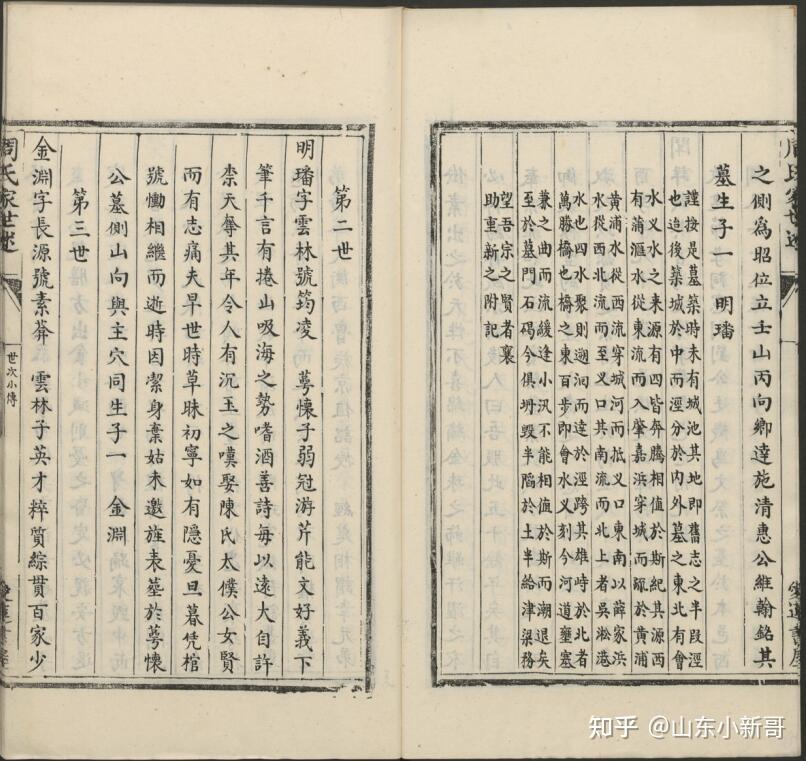 周氏家世述
之側為昭位立士山丙向鄉達施清惠公維翰銘其
墓生子一 明璠
謹按是墓築時未有城池其地即舊志之半段涇
也迨後築城於中而涇分於內外墓之東北有會
水义水之来源有四皆奔騰相值於斯紀其源西
有蒲滙水從東流而入肇嘉浜穿城而疏於黄浦
黄浦水從西流穿城河而抵义口東南以薛家浜
水從西北流而至义口其南流而北上者吳淞港
水也四水聚則迴洄而達於涇跨其雄峙於北者
萬勝橋也橋之東百步即會水义刻今河道壅塞
兼之曲而流緩逢小汛不能相值於斯而潮退矣
至於墓門石碣今俱坍毀半陷於土半給津梁務
望吾宗之賢者襄
助重新之附記
第二世
明璠字雲林號筠凌 蕚懷子弱冠游芹能文好義下
筆千言有捲山吸海之勢嗜酒善詩每以遠大自許
柰天奪其年令人有沉玉之嘆娶陳氏太僕公女賢
而有志痛夫早世時草昧初寧如有隱憂旦暮凭棺
號慟相繼而逝時因潔身棄姑未邀旌表墓於蕚懷
公墓側山向與主穴同生子一 金淵
第三世
金淵字長源號素莽 雲林子英才粹質綜貫百家少
周氏家世述
世次小傳
愛蓮書屋
知乎 @山东小新哥